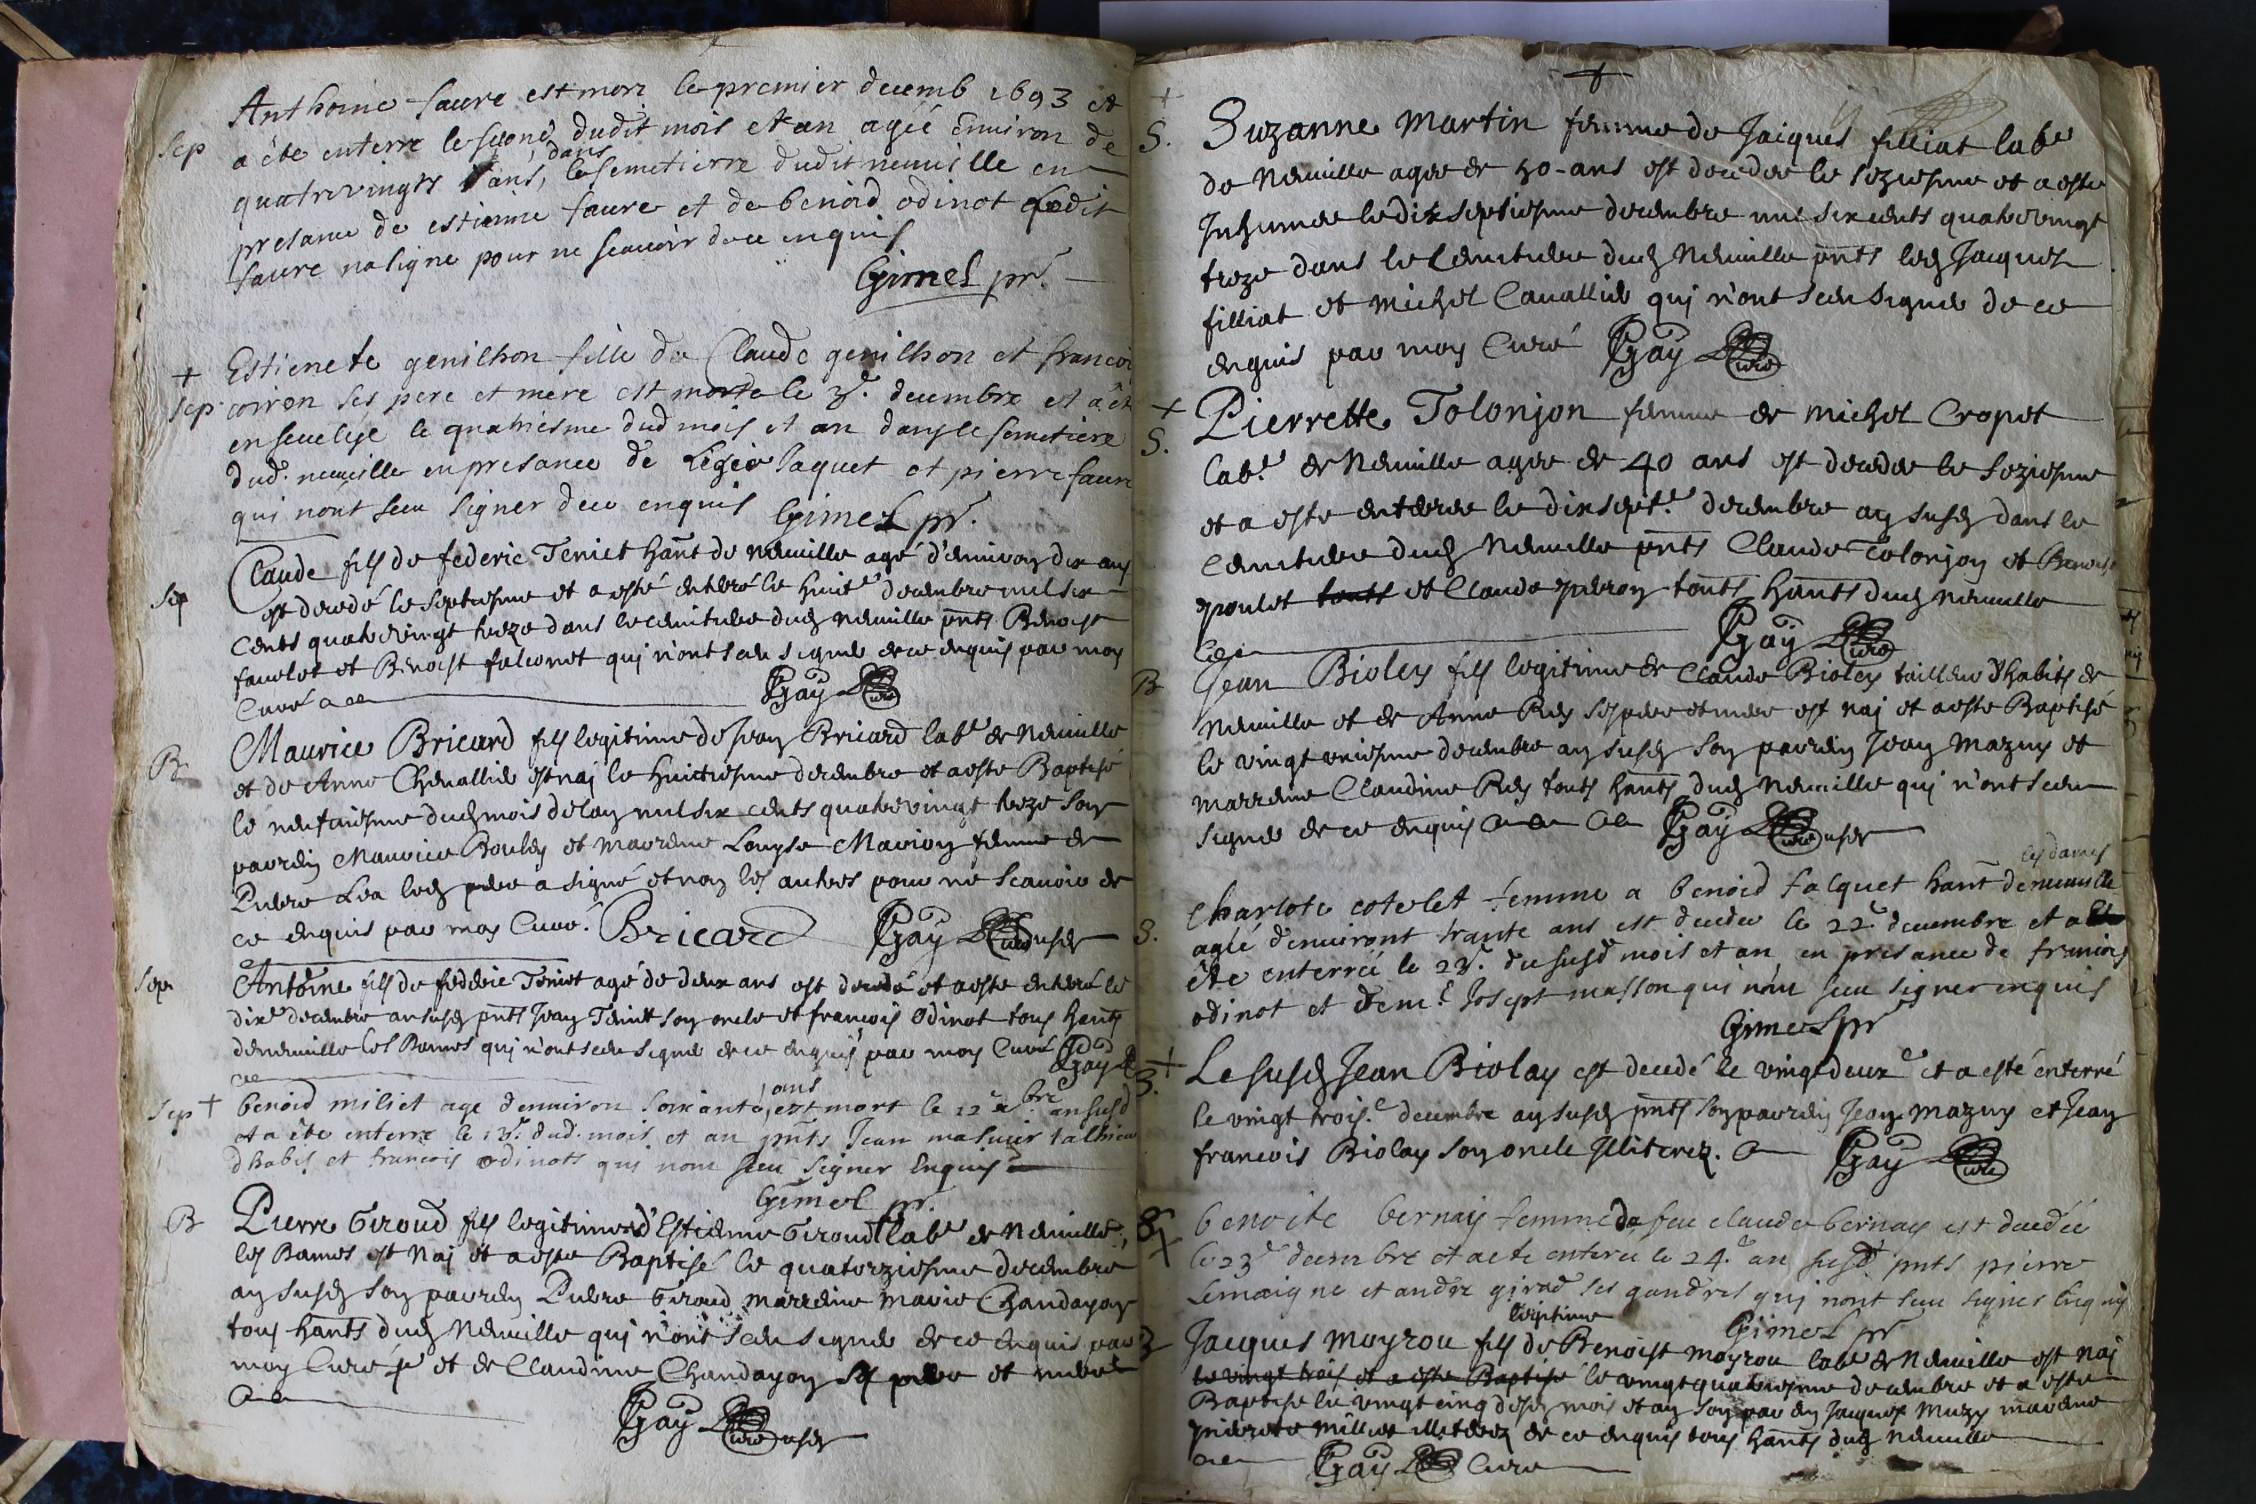 Anthoine faure est mort le premier decemb 1693 et
Sep
a ête enterre le second dudit mois et an ageé environ de
quatrevingts ans, dans le semetierre dudit neuuille en
presance de estienne faure et de benoid odinot ledit
faure na signe pour ne scauoir de ce enquis
Gimel pr.
+ Estienete genilhon fille de Claude genilhon et francoi
Sep. coiron ses pere et mere est morte le 3e. decembre et a êt
enseuelye le quatriesme dud mois et an dans le semetiere
dud. neuuille en presance de Legier Jaquet et pierre faure
qui nont sceu signer de ce enquis Gimel pr.
Claude fils de federic Teniet hant de Neuuille agé d'enuiron dix ans
Sep
est decedé le septiesme et a esté enterré le huict.e decembre mil six
cents quatrevingt treze dans le cemitiere dud Neuuille pnts Benoist
fauelot et Benoist falconet qui n'ont sceu signer de ce enquis par moy
Curé
Gay Curé
Maurice Bricard fils legitime de Jean Bricard labr de Neuuille
B
et de Anne Cheuallier est naj le huictiesme decembre et a este Baptisé
le neufuiesme dud mois de l'an mil six cents quatrevingt treze son
parrein Maurice Bouley et marreine Louyse Marion femme de
Pierre Lea led pere a signé et non les autres pour ne scauoir de
ce enquis par moy Curé. Bricard Gay Curé susd
Sep. Antoine fils de federic Teniet agé de deux ans est decedé et a este enterré le
dix.e decembre an susd pnts Jean Teniet son oncle et françois Odinot tous hants
de neuuille les Dames qui n'ont sceu signer de ce enquis par moy Curé Gay
Sep + benoid miliet age denuiron soixante, ans est mort le 12 xbre an susd
et a ête enterre le 13e. dud. mois et an pnts Jean masuier talhieur
dhabis et francois odinots qui nont sceu signer enquis
Gimel pr.
B Pierre Giroud fils legitime d'Estienne Giroud labr de Neuuille
les Dames est Naj et a este Baptisé le quatorziesme decembre
an susd son parrein Pierre Giroud marreine Marie Chandayon
tous hants dud Neuuille qui n'ont sceu signer de ce enquis par
moy Curé et de Claudine Chandayon ses pere et mere
Gay Curé susd
+
S. Suzanne Martin femme de Jaiques filliat labr
de Neuuille agee de 50 ans est decedee le seziesme et a este
Inhumee le dix septiesme decembre mil six cents quatrevingt
treze dans le Cemitiere dud Neuuille pnts led Jacques
filliat et Michel Cauallier qui n'ont sceu signer de ce
enquis par moy Curé Gay Curé
+ Pierrette Tolonjon femme de Michel Cropet
S.
labr de Neuuille agee de 40 ans est decedee le seziesme
et a este enterree le dix sept.e decembre an susd dans le
Cemitiere dud Neuuille pnts Claude Tolonjon et Benoist
poulet touts et Claude peron touts hants dud Neuuille
Gay Curé
B Jean Bioley fils legitime de Claude Bioley tailleur d'habits de
Neuuille et de Anne Rey ses pere et mere est naj et a este Baptisé
le vingt uniesme decembre an susd son parrein Jean Mazuy et
marreine Claudine Rey touts hants dud Neuuille qui n'ont sceu
signer de ce enquis Gay Curé susd
les dames
Charlote cotelet femme a benoid falquet hant de neuuille
S. ageé d'enuiront trante ans est decedee le 22e decembre et a
ête enterreé le 23e. du susd mois et an en presance de francois
odinot et de mr Josept masson qui n'ont sceu signer enquis
Gimel pr
+ S. Le susd Jean Biolay est decedé le vingt deux.e et a esté enterré
le vingt trois.e decembre an susd pnts son parrein Jean Mazuy et Jean
francois Biolay son oncle Illiterez. Gay Curé
S + benoite bernay femme de feu claude bernay est decedeé
le 23e decembre et a ete enteree le 24.e an susd pnts pierre
Lemaigne et andre girad ses gandres qui nont sceu signer Enquis
Gimel pr
legitime
B Jacques Moyrou fils de Benoist Moyrou labr de Neuuille est naj
le vingt trois et a este Baptisé le vingt quatriesme decembre et a este
Baptisé le vingt cinq desd mois et an son parrein Jacques Muzy marreine
pierrete Milliet illeterez de ce enquis tous hants dud Neuuille
Gay Curé